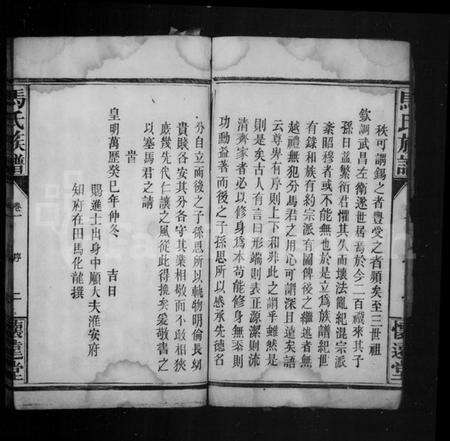 馬氏族譜
懷遠堂
秩可謂錫之者豐受之者頻矣至三世祖
欽調武昌左衛遂世居焉於今二百載來其子
孫日益繁衍君懼其久而壞法亂紀混宗派
紊昭穆者或不能無也於是立爲族譜紀世
有錄和族有約宗派有圖俾後之繼述者無
越禮無犯分馬君之用心可謂深且遠矣語
云尊卑有序則上下和非此之謂乎雖然是
則是矣古人有言曰形端則表正源潔則流
清齊家者必以修身爲本苟能修身無忝則
功勳益著而後之子孫思所以感承先德名
分自立而後之子孫思所以軌物明倫長幼
貴賤各安其分各守其業相敬而不敢相狹
庶幾先代仁讓之風從此得振矣爰敬書之
以塞馬君之請
旹
皇明萬歷癸巳年仲冬 吉日
賜進士出身中順大夫淮安府
知府在田馬化龍撰
馬氏族譜
卷一
序
二
懷遠堂